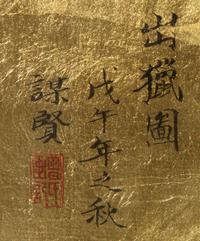 出獵圖
戊午年之秋
謀賢